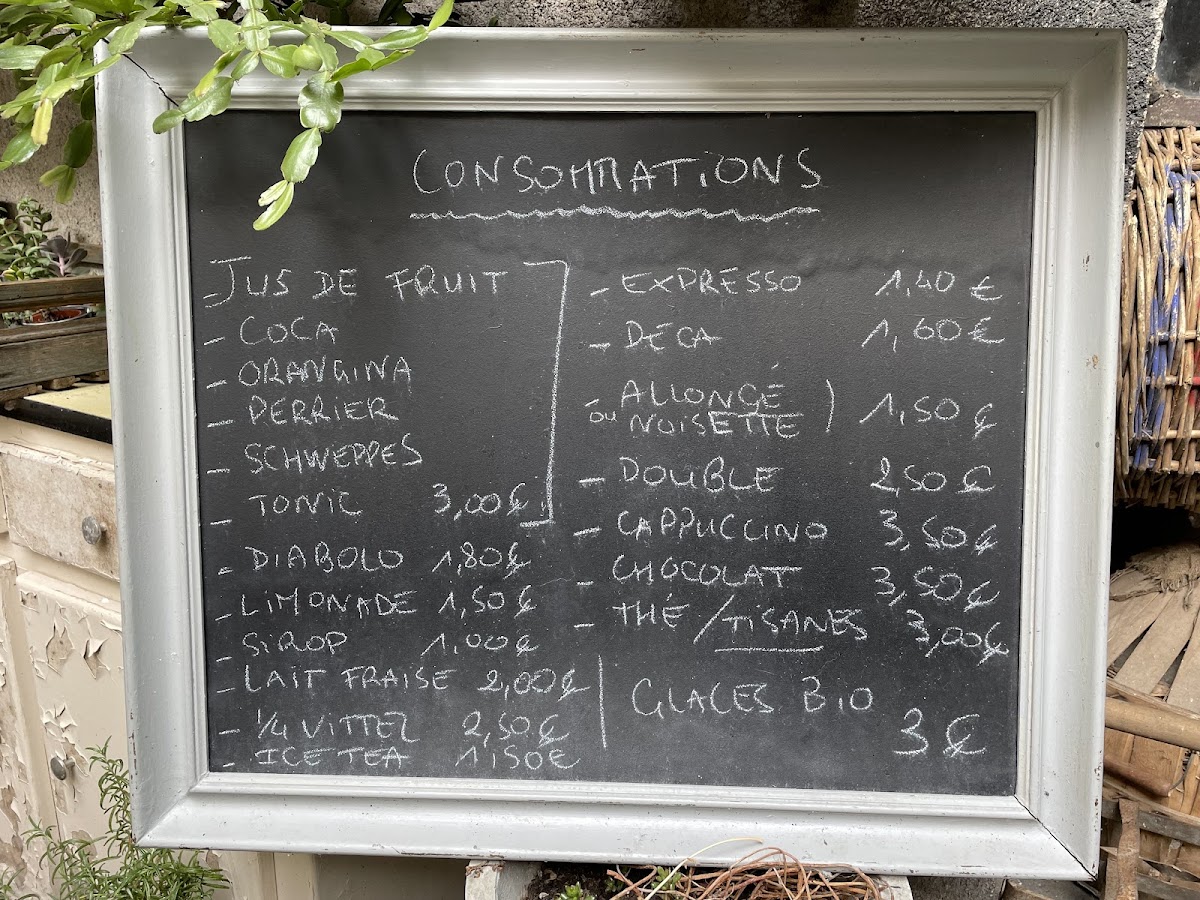 CONSOMMATIONS
- JUS DE FRUIT
- COCA
- ORANGINA
- PERRIER
- SCHWEPPES
- TONIC 3,00€
- DIABOLO 1,80€
- LIMONADE 1,50€
- SIROP 1,00€
- LAIT FRAISE 2,00€
- 1/4 VITTEL 2,50€
- ICE TEA 1,50€
- EXPRESSO 1,40€
- DÉCA 1,60€
- ALLONGÉ
ou NOISETTE ) 1,50€
- DOUBLE 2,50€
- CAPPUCCINO 3,50€
- CHOCOLAT 3,50€
- THÉ / TISANES 3,00€
GLACES BIO
3€